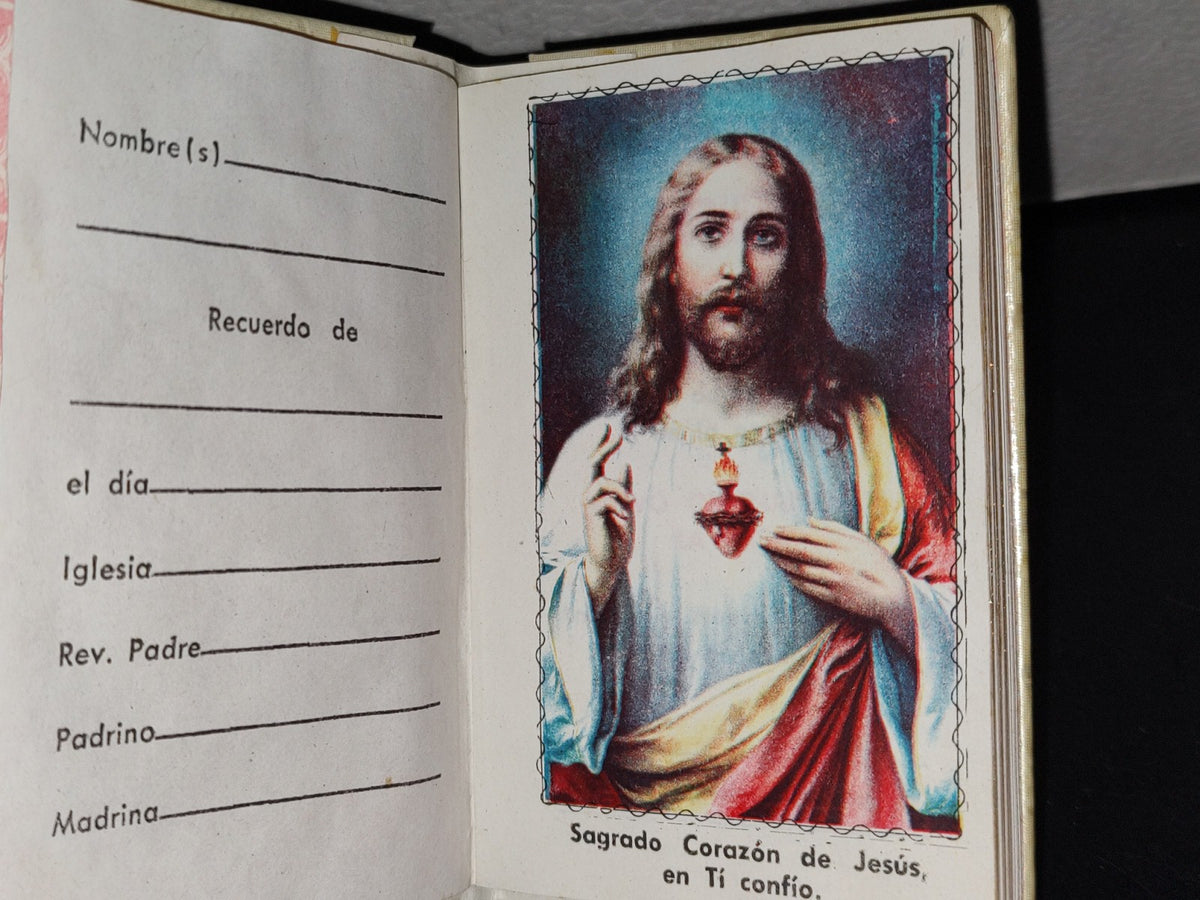 Nombre(s)
Recuerdo de
el día
Iglesia
Rev. Padre
Padrino
Madrina
Sagrado Corazón de Jesús,
en Tí confío.